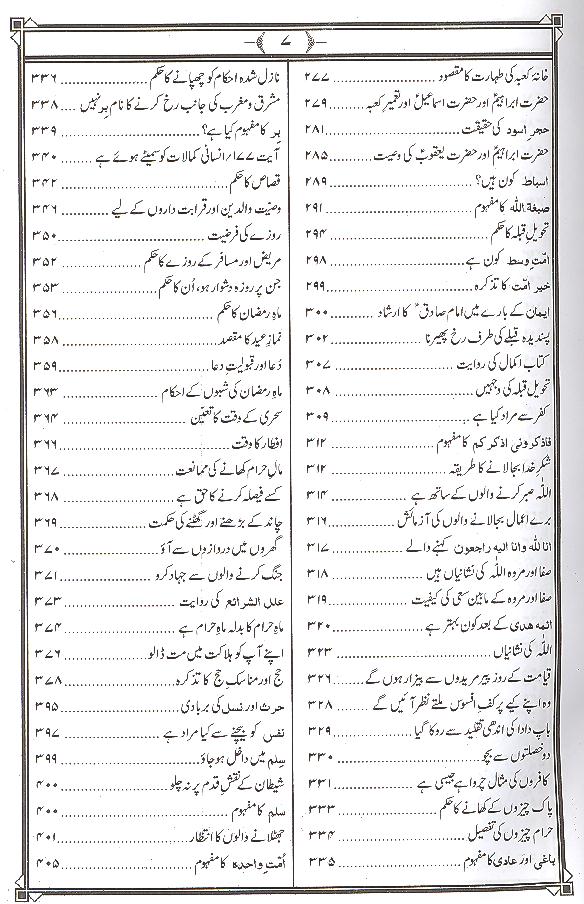 ۷
خانۂ کعبہ کی طہارت کا مقصود ........ ۲۷۷
حضرت ابراہیمؑ اور حضرت اسماعیلؑ اور تعمیرِ کعبہ ۲۷۹
حجرِ اسود کی حقیقت ........ ۲۸۱
حضرت ابراہیمؑ اور حضرت یعقوبؑ کی وصیت ۲۸۵
اسباط کون ہیں؟ ........ ۲۸۹
صبغة اللّٰہ کا مفہوم ........ ۲۹۱
تحویلِ قبلہ کا حکم ........ ۲۹۴
امّتِ وسط کون ہے ........ ۲۹۸
خیر امّت کا تذکرہ ........ ۲۹۹
ایمان کے بارے میں امام صادقؑ کا ارشاد ۳۰۰
پسندیدہ قبلے کی طرف رخ پھیرنا ........ ۳۰۲
کتاب اکمال کی روایت ........ ۳۰۷
تحویلِ قبلہ کی وجہیں ........ ۳۰۸
کفر سے مراد کیا ہے ........ ۳۰۹
فاذکرونی اذکرکم کا مفہوم ........ ۳۱۲
شکرِ خدا بجا لانے کا طریقہ ........ ۳۱۲
اللّٰہ صبر کرنے والوں کے ساتھ ہے ........ ۳۱۴
برے اعمال بجا لانے والوں کی آزمائش ۳۱۶
انا للہ وانا الیه راجعون کہنے والے ........ ۳۱۷
صفا اور مروہ اللّٰہ کی نشانیاں ہیں ........ ۳۱۸
صفا اور مروہ کے مابین سعی کی کیفیت ........ ۳۱۹
ائمه هدی کے بعد کون بہتر ہے ........ ۳۲۰
اللّٰہ کی نشانیاں ........ ۳۲۳
قیامت کے روز پیر مریدوں سے بیزار ہوں گے ۳۲۶
وہ اپنے کیے پر کفِ افسوس ملتے نظر آئیں گے ۳۲۸
باپ دادا کی اندھی تقلید سے روکا گیا ........ ۳۲۹
دو خصلتوں سے بچو ........ ۳۳۰
کافروں کی مثال چرواہے جیسی ہے ........ ۳۳۱
پاک چیزوں کے کھانے کا حکم ........ ۳۳۳
حرام چیزوں کی تفصیل ........ ۳۳۴
باغی اور عادی کا مفہوم ........ ۳۳۵
نازل شدہ احکام کو چھپانے کا حکم ........ ۳۳۶
مشرق و مغرب کی جانب رخ کرنے کا نام بِر نہیں ۳۳۸
بِر کا مفہوم کیا ہے؟ ........ ۳۳۹
آیت ۱۷۷ انسانی کمالات کو سمیٹے ہوئے ہے ۳۴۰
قصاص کا حکم ........ ۳۴۲
وصیّت والدین اور قرابت داروں کے لیے ۳۴۶
روزے کی فرضیت ........ ۳۵۰
مریض اور مسافر کے روزے کا حکم ........ ۳۵۲
جن پر روزہ دشوار ہو، اُن کا حکم ........ ۳۵۳
ماہِ رمضان کا حکم ........ ۳۵۶
نمازِ عید کا مقصد ........ ۳۵۸
دُعا اور قبولیتِ دعا ........ ۳۵۹
ماہِ رمضان کی شبوں کے احکام ........ ۳۶۳
سحری کے وقت کا تعیّن ........ ۳۶۴
افطار کا وقت ........ ۳۶۶
مالِ حرام کھانے کی ممانعت ........ ۳۶۷
کسے فیصلہ کرنے کا حق ہے ........ ۳۶۸
چاند کے بڑھنے اور گھٹنے کی حکمت ........ ۳۶۹
گھروں میں دروازوں سے آؤ ........ ۳۷۰
جنگ کرنے والوں سے جہاد کرو ........ ۳۷۱
علل الشرائع کی روایت ........ ۳۷۳
ماہِ حرام کا بدلہ ماہِ حرام ہے ........ ۳۷۴
اپنے آپ کو ہلاکت میں مت ڈالو ........ ۳۷۶
حج اور مناسکِ حج کا تذکرہ ........ ۳۷۸
حرث اور نسل کی بربادی ........ ۳۹۵
نفس کو بیچنے سے کیا مراد ہے ........ ۳۹۷
سِلم میں داخل ہو جاؤ ........ ۳۹۹
شیطان کے نقشِ قدم پر نہ چلو ........ ۴۰۰
سلم کا مفہوم ........ ۴۰۰
جھٹلانے والوں کا انتظار ........ ۴۰۱
اُمّتِ واحدہ کا مفہوم ........ ۴۰۵